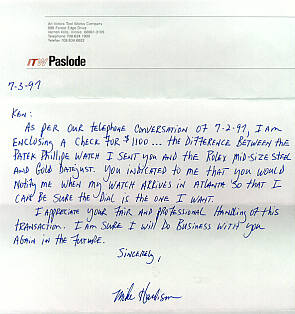 An Illinois Tool Works Company
888 Forest Edge Drive
Vernon Hills, Illinois 60061-3105
Telephone 708.634.1900
Telefax 708.634.6602
ITW Paslode
7-3-97
Ken:
As per our telephone conversation of 7-2-97, I am
enclosing a check for $1100 ... the difference between the
Patek Phillipe watch I sent you and the Rolex mid-size steel
and gold Datejust. You indicated to me that you would
notify me when my watch arrives in Atlanta so that I
can be sure the dial is the one I want.
I appreciate your fair and professional handling of this
transaction. I am sure I will do business with you
again in the future.
Sincerely,
Mike